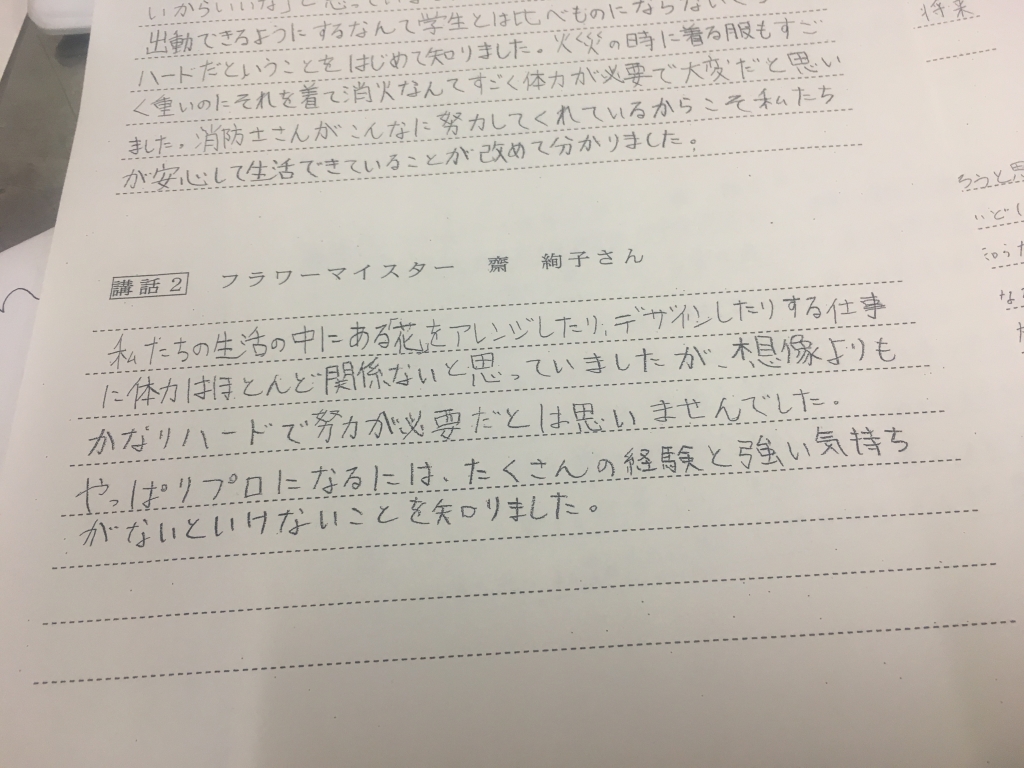 いからいいな」と思ってい
出動できるようにするなんて学生とは比べものにならない
ハードだということをはじめて知りました。火災の時に着る服もすご
く重いのにそれを着て消火なんてすごく体力が必要で大変だと思い
ました。消防士さんがこんなに努力してくれているからこそ私たち
が安心して生活できていることが改めて分かりました。
講話2 フラワーマイスター 齋 絢子さん
私たちの生活の中にある「花」をアレンジしたり、デザインしたりする仕事
に体力はほとんど関係ないと思っていましたが、想像よりも
かなりハードで努力が必要だとは思いませんでした。
やっぱりプロになるには、たくさんの経験と強い気持ち
がないといけないことを知りました。
将来